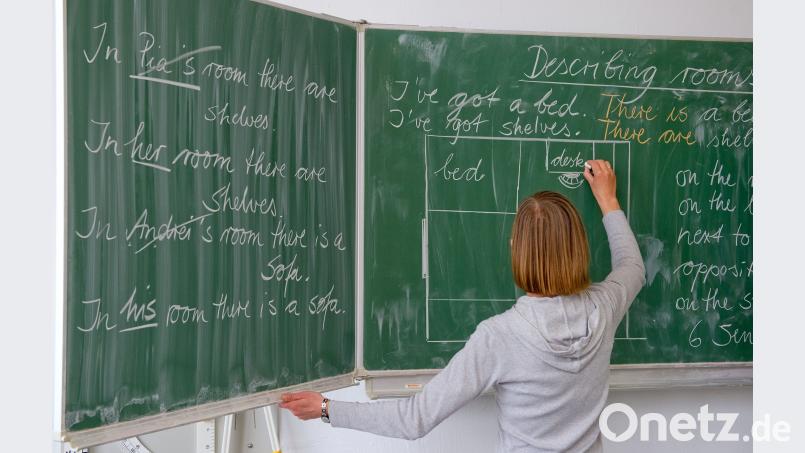 In Pia's room there are
shelves.
In her room there are
shelves.
In Andrei's room there is a
sofa.
In his room there is a sofa.
Describing rooms
I've got a bed. There is a be
I've got shelves. There are shel
bed
desk
on the
on the
next to
opposit
on the s
6 Sen
Onetz.de